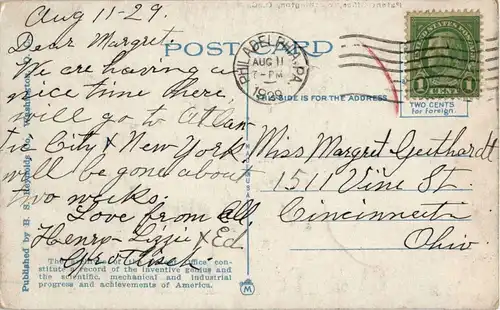 Aug 11-29.
Dear Margret
We are having a
nice time here
will go to Atlan
tic City & New York
will be gone about
two weeks.
Love from All,
Henry-Lizzie & Ed
POST CARD
THIS SIDE IS FOR THE ADDRESS
PHILADELPHIA, PA.
AUG 11
7-PM
1929
1 CENT 1
TWO CENTS
for foreign.
Miss Margret Geithardt
1511 Vine St
Cincinnati
Ohio
Published by B. S. Reynolds Co., Washington, D. C.
MADE IN U.S.A.
office, con-
stitute a record of the inventive genius and
the scientific, mechanical and industrial
progress and achievements of America.
M